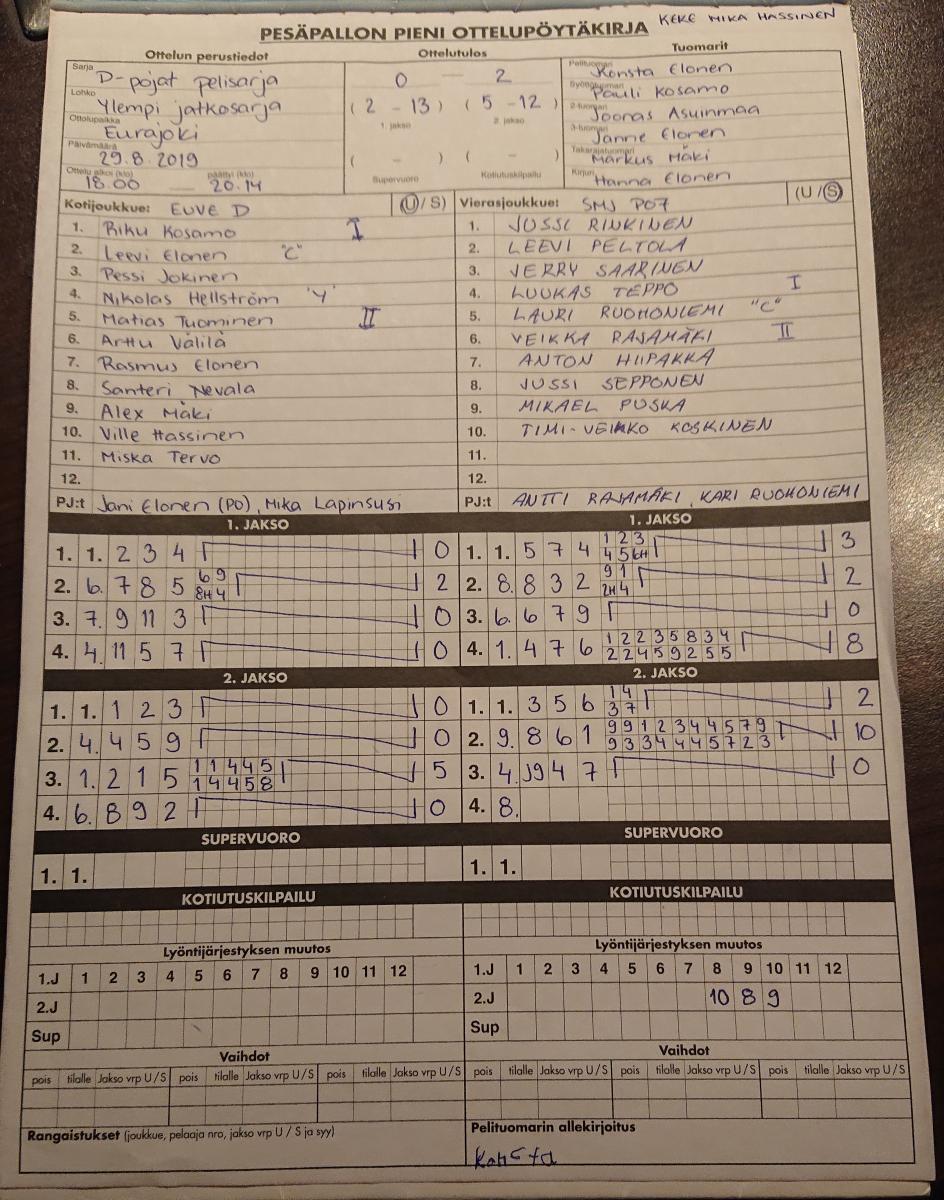 KEKE MIKA HASSINEN
PESÄPALLON PIENI OTTELUPÖYTÄKIRJA
Ottelun perustiedot Ottelutulos Tuomarit
Sarja D-pojat pelisarja 0 — 2 Pelituomari Konsta Elonen
Lohko Ylempi jatkosarja (2 - 13) (5 - 12) Syöttötuomari Pauli Kosamo
Ottelupaikka Eurajoki 1. jakso 2. jakso 2-tuomari Joonas Asuinmaa
3-tuomari Janne Elonen
Päivämäärä 29.8.2019 ( - ) ( - ) Takarajatuomari Markus Mäki
Ottelu alkoi (klo) 18.00 — päättyi (klo) 20.14 Supervuoro Kotiutuskilpailu Kirjuri Hanna Elonen
Kotijoukkue: EUVE D (U/S) Vierasjoukkue: SMJ P07 (U/S)
1. Riku Kosamo I 1. JUSSI RINKINEN
2. Leevi Elonen "C" 2. LEEVI PELTOLA
3. Pessi Jokinen 3. JERRY SAARINEN
4. Nikolas Hellström 'Y' 4. LUUKAS TEPPO I
5. Matias Tuominen II 5. LAURI RUOHONIEMI "C"
6. Arttu Välilä 6. VEIKKA RAJAMÄKI II
7. Rasmus Elonen 7. ANTON HIIPAKKA
8. Santeri Nevala 8. JUSSI SEPPONEN
9. Alex Mäki 9. MIKAEL PUSKA
10. Ville Hassinen 10. TIMI-VEIKKO KOSKINEN
11. Miska Tervo 11.
12. 12.
PJ:t Jani Elonen (PO), Mika Lapinsusi PJ:t ANTTI RAJAMÄKI, KARI RUOHONIEMI
1. JAKSO 1. JAKSO
1. 1. 2 3 4 0 1. 1. 5 7 4 1 2 3 3
4 5 6H
2. 6. 7 8 5 6 9 2 2. 8. 8 3 2 9 1 2
8H 4 2H 4
3. 7. 9 11 3 0 3. 6. 6 7 9 0
4. 4. 11 5 7 0 4. 1. 4 7 6 1 2 2 3 5 8 3 4 8
2 2 4 5 9 2 5 5
2. JAKSO 2. JAKSO
1. 1. 1 2 3 0 1. 1. 3 5 6 1 4 2
3 7
2. 4. 4 5 9 0 2. 9. 8 6 1 9 9 1 2 3 4 4 5 7 9 10
9 3 3 4 4 4 5 7 2 3
3. 1. 2 1 5 1 1 4 4 5 5 3. 4. 9 4 7 0
1 4 4 5 8
4. 6. 8 9 2 0 4. 8.
SUPERVUORO SUPERVUORO
1. 1. 1. 1.
KOTIUTUSKILPAILU KOTIUTUSKILPAILU
Lyöntijärjestyksen muutos Lyöntijärjestyksen muutos
1.J 1 2 3 4 5 6 7 8 9 10 11 12 1.J 1 2 3 4 5 6 7 8 9 10 11 12
2.J 2.J 10 8 9
Sup Sup
Vaihdot Vaihdot
pois tilalle Jakso vrp U/S pois tilalle Jakso vrp U/S pois tilalle Jakso vrp U/S pois tilalle Jakso vrp U/S pois tilalle Jakso vrp U/S pois tilalle Jakso vrp U/S
Rangaistukset (joukkue, pelaaja nro, jakso vrp U / S ja syy) Pelituomarin allekirjoitus
Konsta